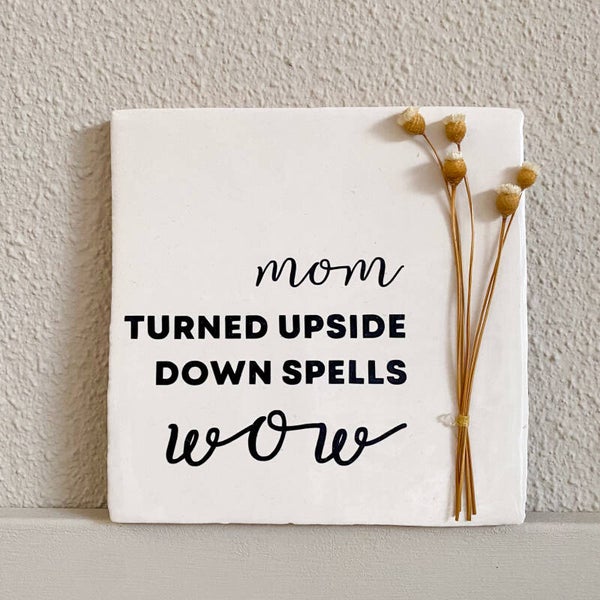 mom
TURNED UPSIDE
DOWN SPELLS
wow